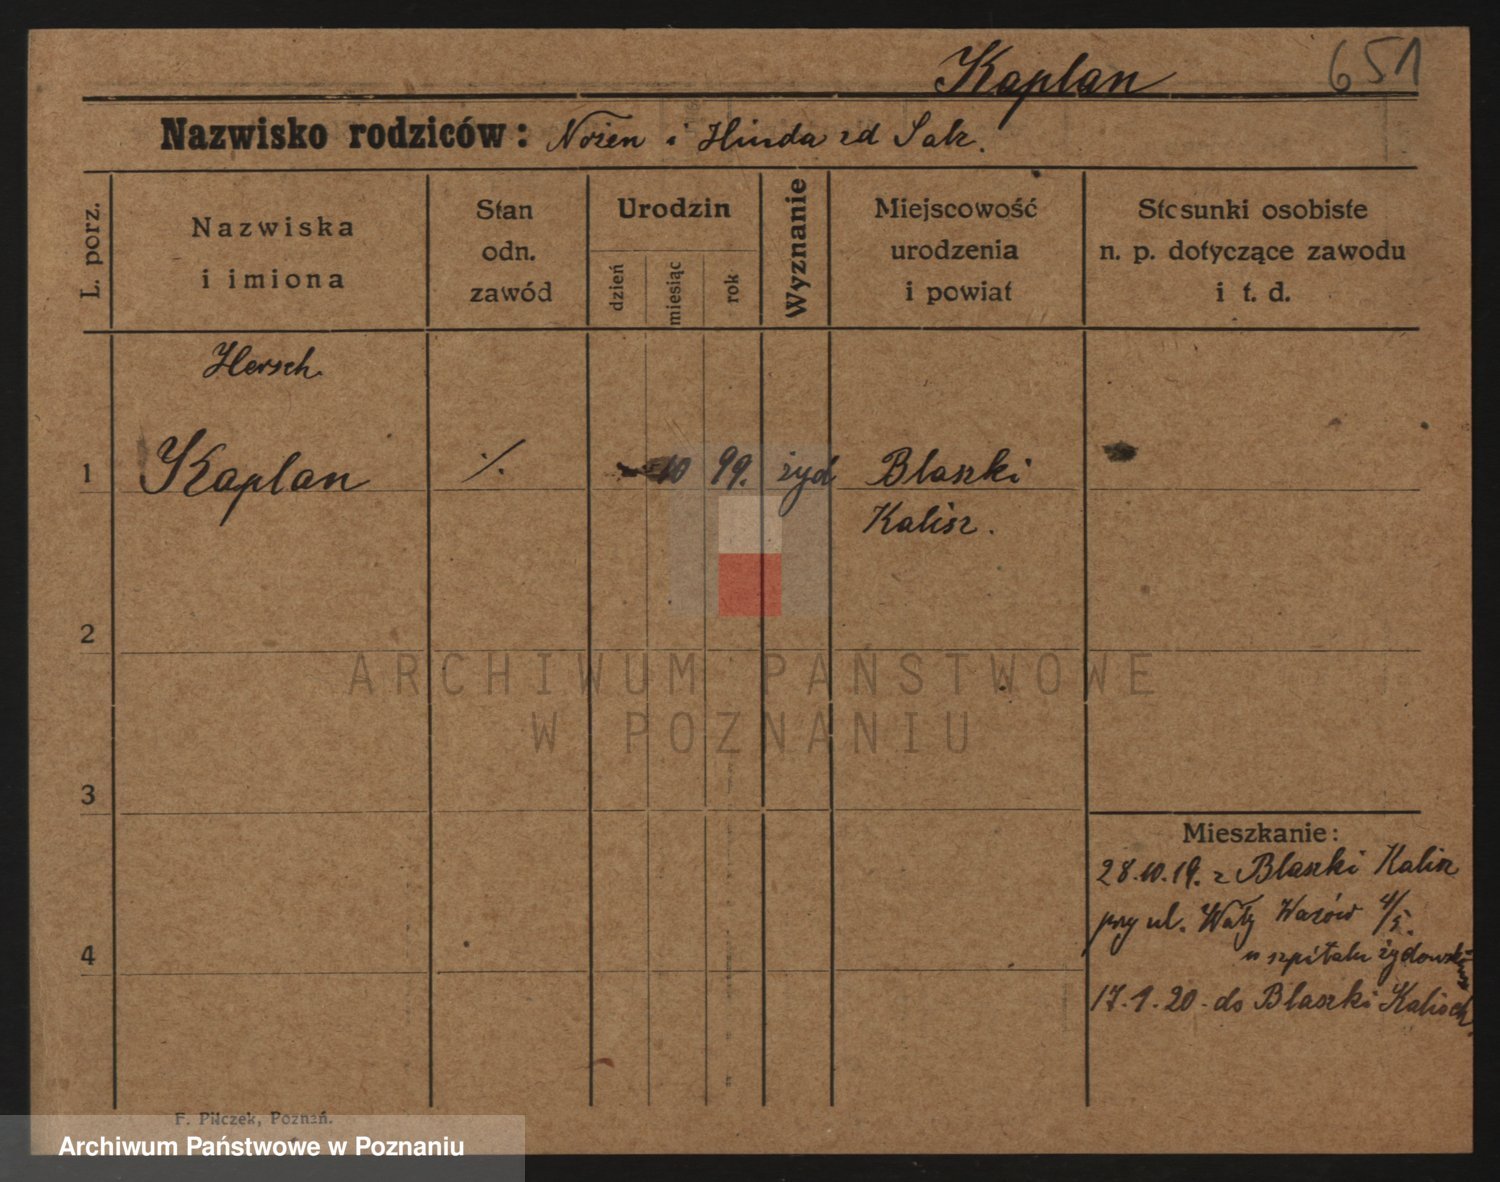 Kaplan 651
Nazwisko rodziców: Nożen i Hinda zd Salz.
L. porz.
Nazwiska
i imiona
Stan
odn.
zawód
Urodzin
dzień
miesiąc
rok
Wyznanie
Miejscowość
urodzenia
i powiat
Stosunki osobiste
n. p. dotyczące zawodu
i t. d.
Hersch.
1 Kaplan ·/. 10 99. żyd Blaszki
Kalisz.
2
ARCHIWUM PAŃSTWOWE
W POZNANIU
3
Mieszkanie:
28.10.19. z Blaszki Kalisz
przy ul. Wały Wazów 4/5.
w szpitalu
4
17.1.20 - do Blaszki
F. Pilczek, Poznań.
Archiwum Państwowe w Poznaniu